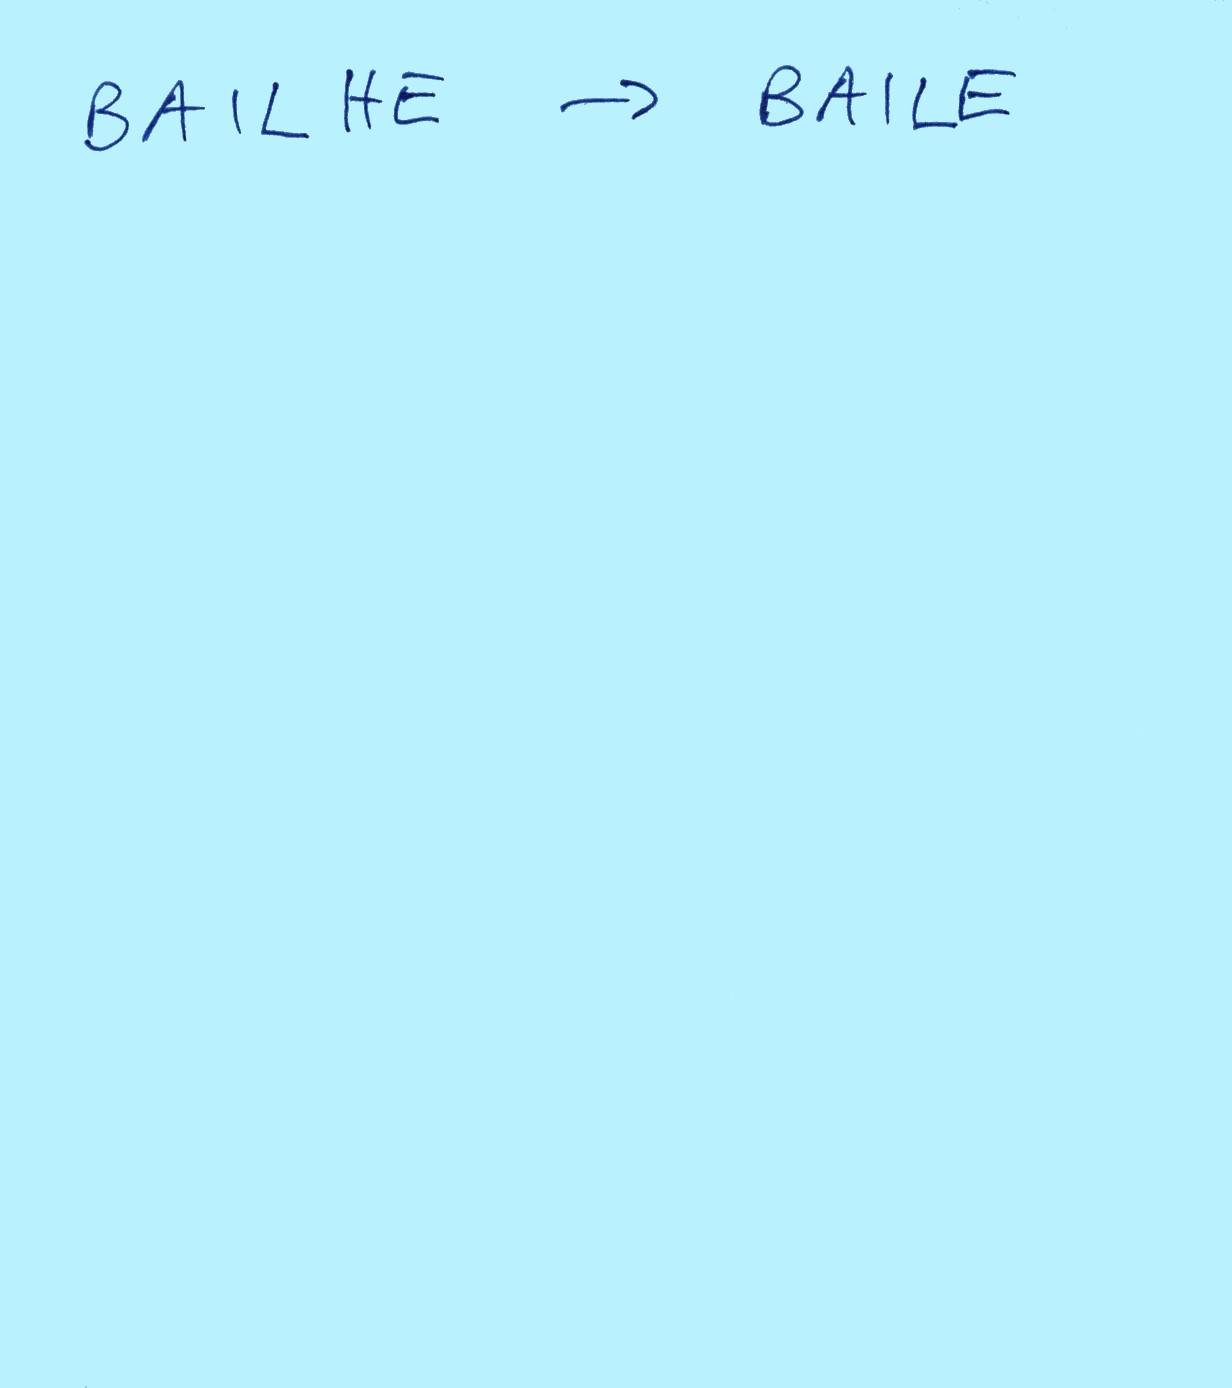 BAILHE → BAILE